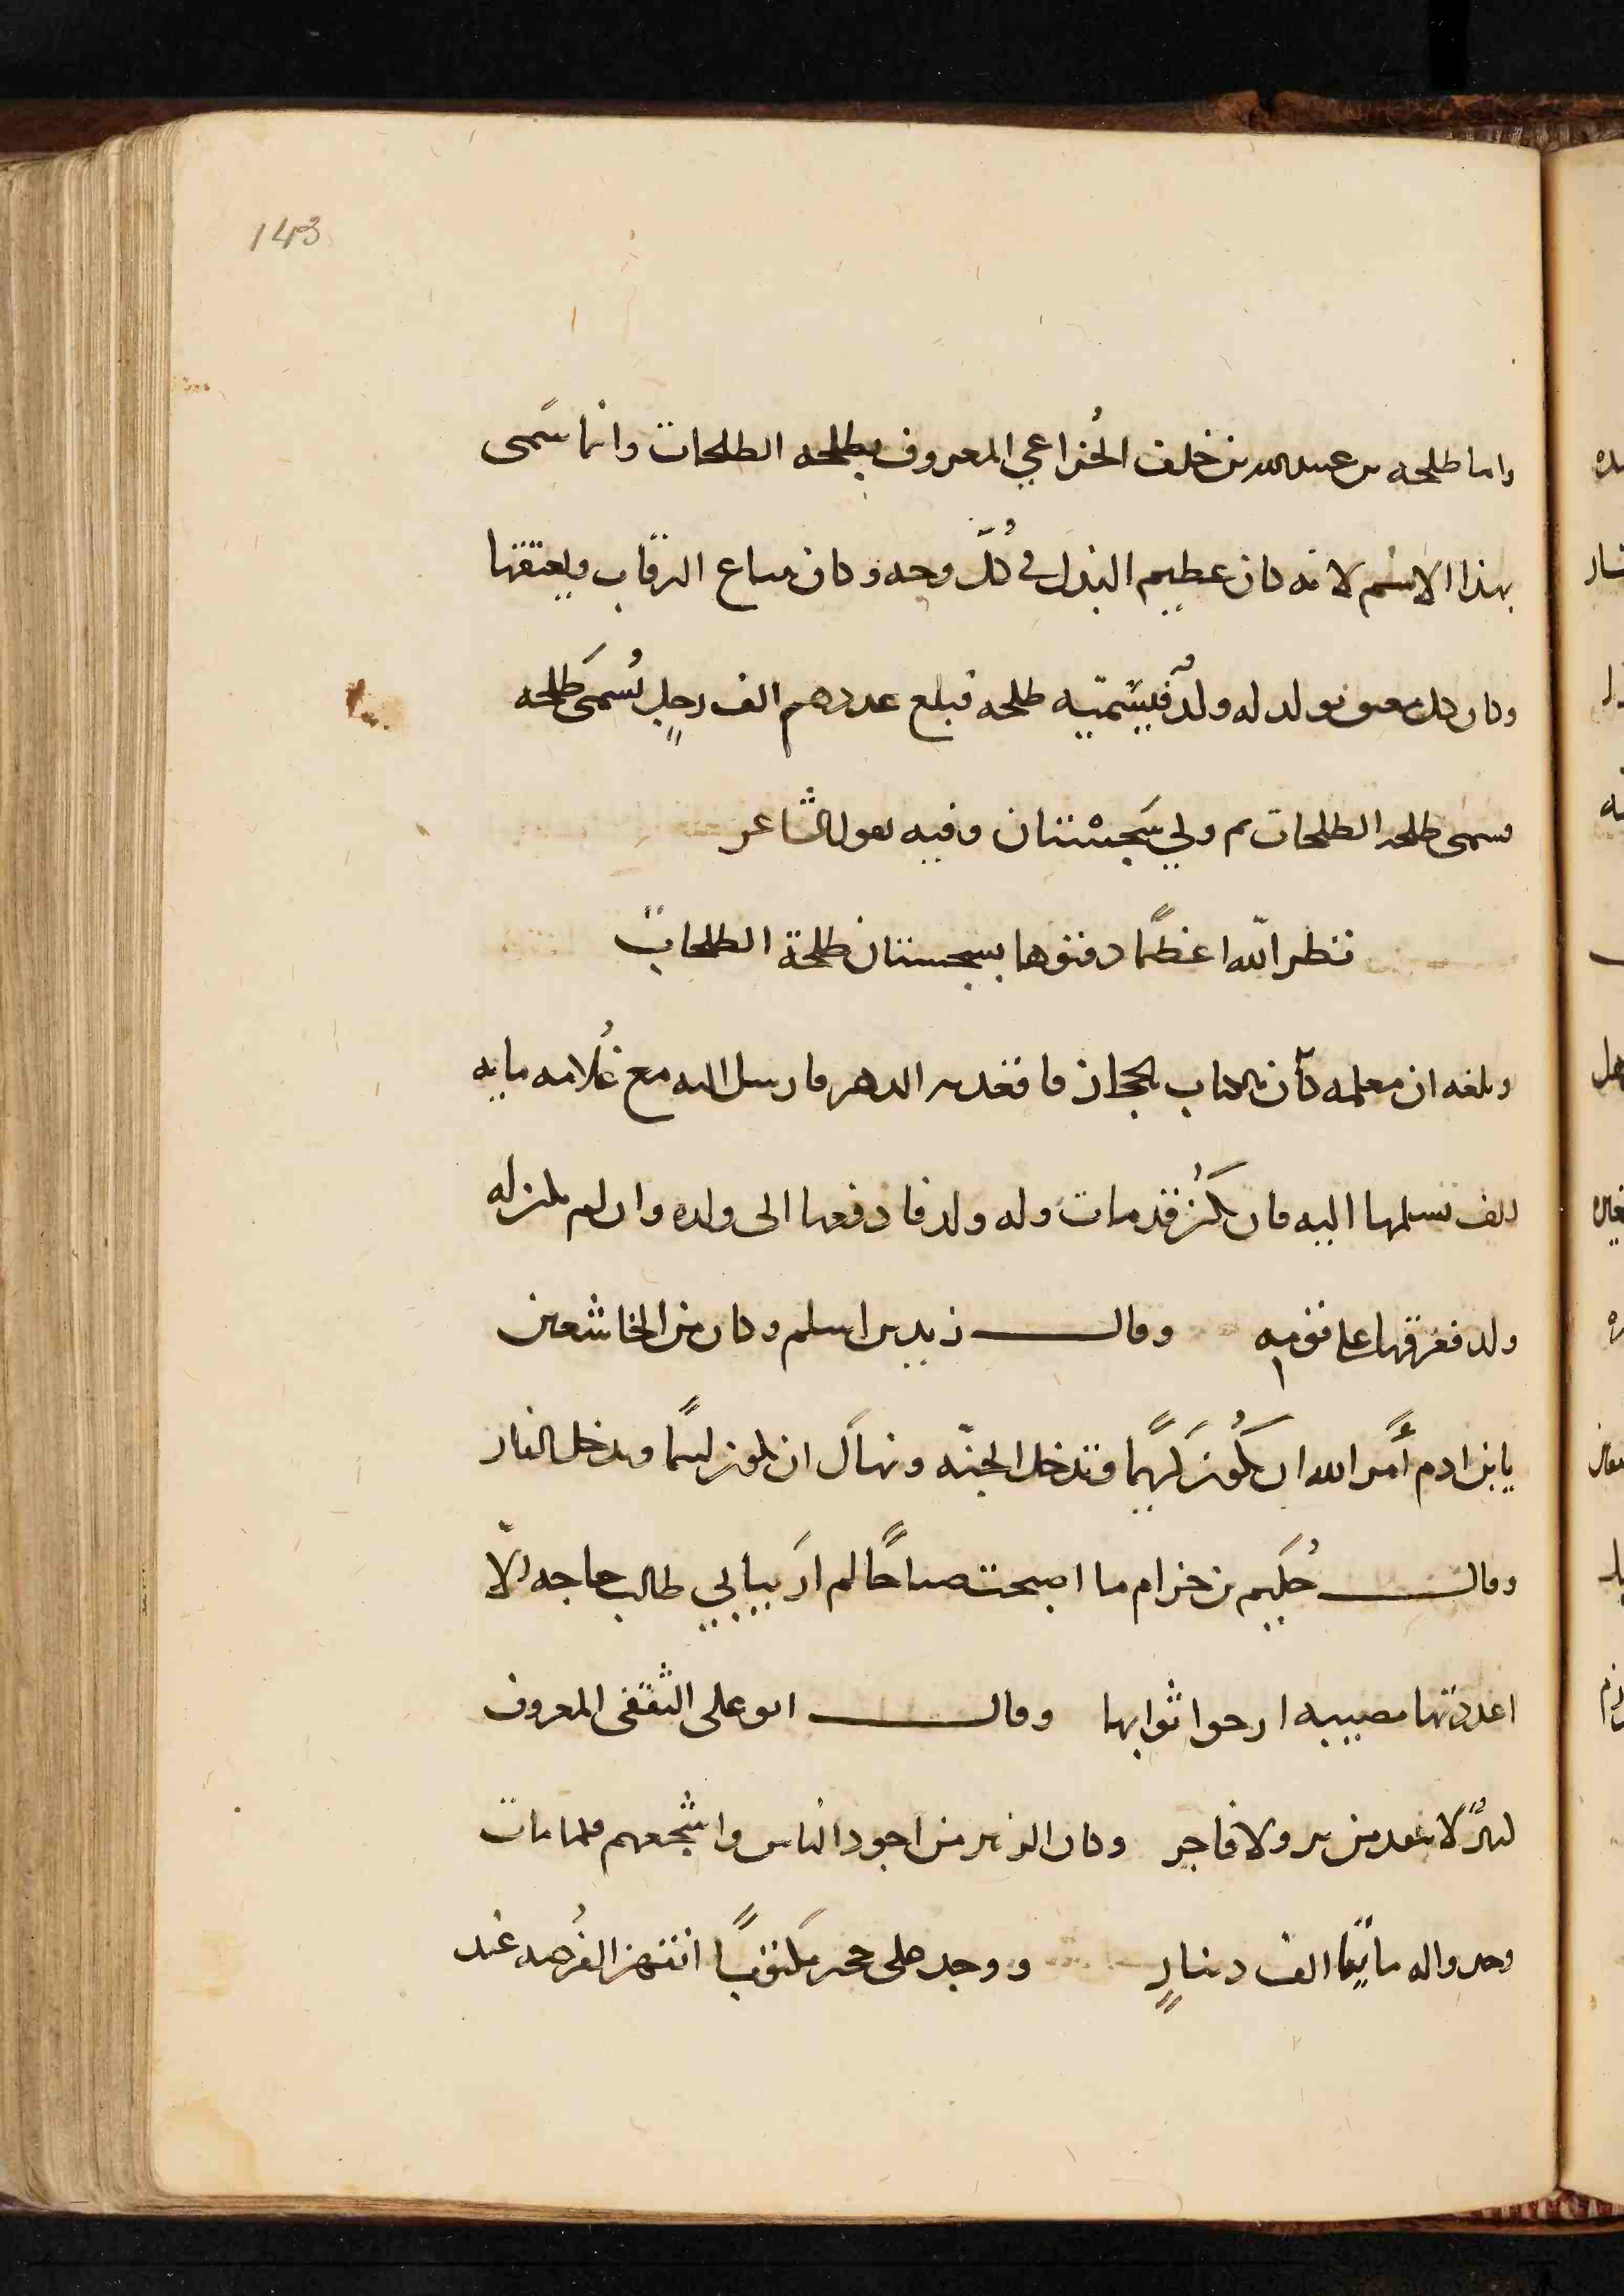 143
واما طلحه بن عبيد الله بن خلف الخُزاعي المعروف بطلحه الطلحات وانما سَمى
بهذا الاسْم لانه كان عظيم البذل في كُلّ وجه وكان يبتاع الرقاب ويعتقها
وكان كل معتق يولد له ولدٌ فيسَمّيه طلحه فبلغ عددهم الف رجلٍ يُسمَى طلحه
فسمى طلحه الطلحات ثم ولي سَجسْتان وفيه يقول الشاعر
نظر الله اعظمًا دفنوها بسجستان طلحة الطلحات
وبلغه ان معلمه كان بالحجاز قد الدهر فارسل اليه مع غُلامه مايه
الف تسلمها اليه فان يكُن قد مات وله ولد فادفعها الى ولده وان لم يكن له
ولد ففرقها على قومه وقال زيد بن اسلم وكان من الخاشعين
يابن ادم أمرَك الله ان تكُون كريمًا وتدخل الجنّه ونهاك ان تكون ليمًا وتدخل النار
وقال حُكَيم بن حزام ما اصبحت صباحًا لم ارَ ببابي طالب حاجه الّا
اعددتها مصيبه ارجوا ثوابها وقال ابو على الثقفى المعروف
ولا فاجر وكان الزبير من اجود الناس واشجعهم فلما مات
وجدوا له مايتا الف دينارٍ ووجد على حجر مكتوبًا انتهز الفُرصه عند